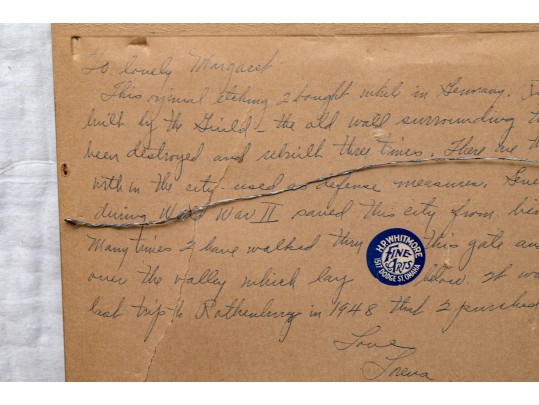 To lovely Margaret
This original etching I bought while in Germany.
built by the Guild - the old wall surrounding
been destroyed and rebuilt three times. There are
within the city used as defense measures.
during World War II saved this city from
Many times I have walked thru this gate and
over the valley which lay below. It wa
last trip to Rothenburg in 1948 that I purchased
Love
Lorena
H.P. WHITMORE
FINE
ARTS
1517 DODGE ST. OMAHA